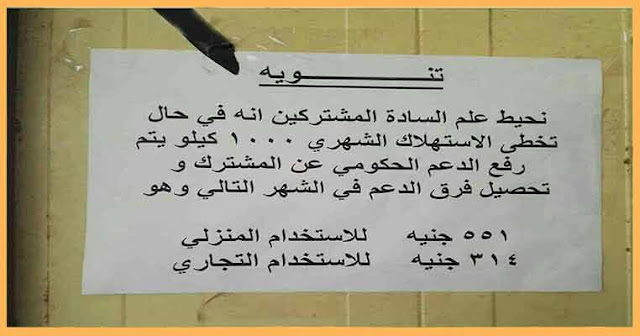 تنـــــــــــويه
نحيط علم السادة المشتركين انه في حال
تخطى الاستهلاك الشهري ١٠٠٠ كيلو يتم
رفع الدعم الحكومي عن المشترك و
تحصيل فرق الدعم في الشهر التالي وهو
٥٥١ جنيه للاستخدام المنزلي
٣١٤ جنيه للاستخدام التجاري